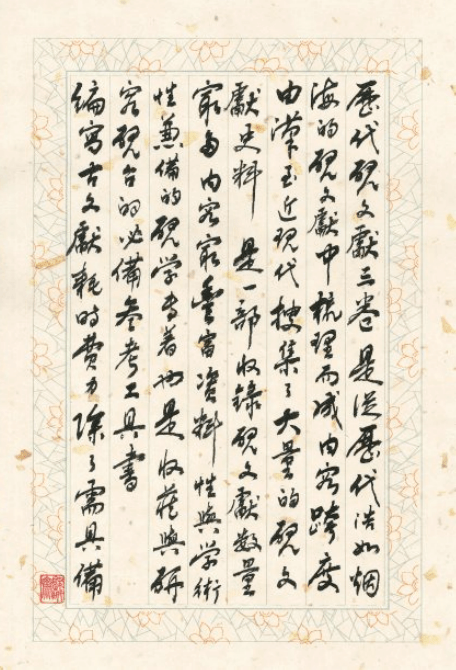 歷代硯文獻三卷是從歷代浩如烟
海的硯文獻中梳理而成内容跨度
由漢至近現代搜集了大量的硯文
獻史料 是一部收錄硯文獻數量
最多内容最豐富資料性與学術
性兼備的硯学專著也是收藏與研
究硯台的必備參考工具書
編寫古文獻耗時費力除了需具備